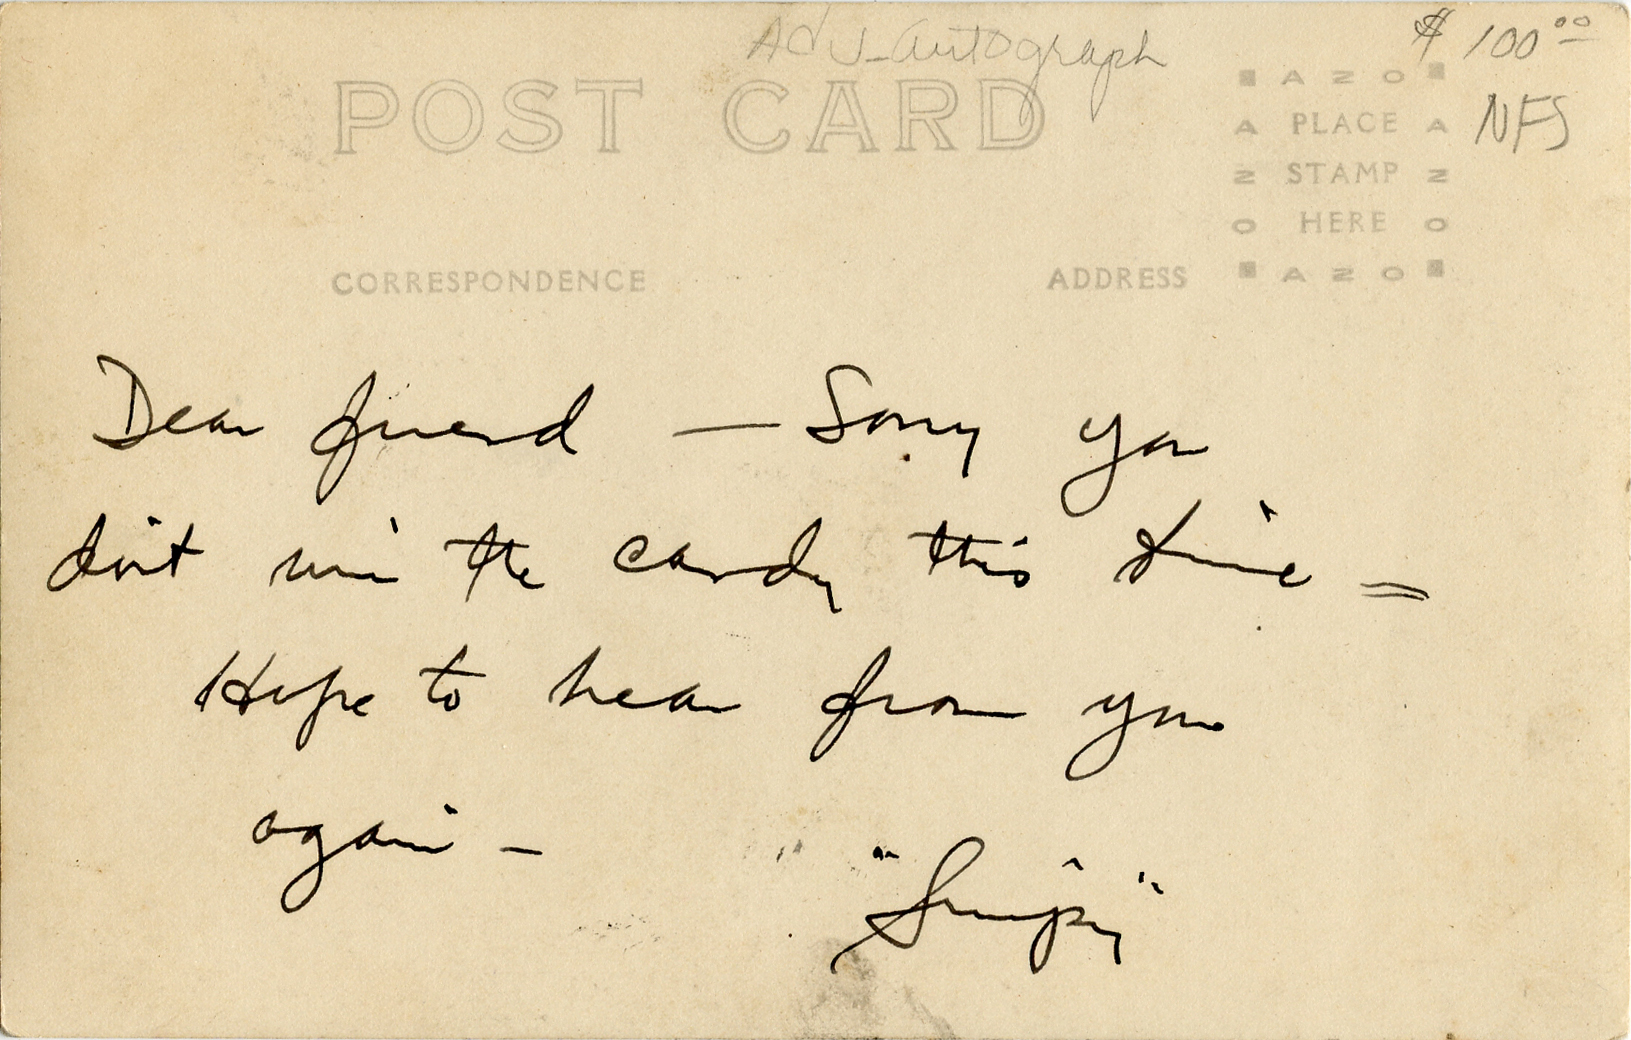 Adv-autograph
$ 100⁰⁰
POST CARD
NFS
A Z O
A PLACE A
Z STAMP Z
O HERE O
A Z O
CORRESPONDENCE
ADDRESS
Dear friend — Sorry you
din't win the candy this time =
Hope to hear from you
again —